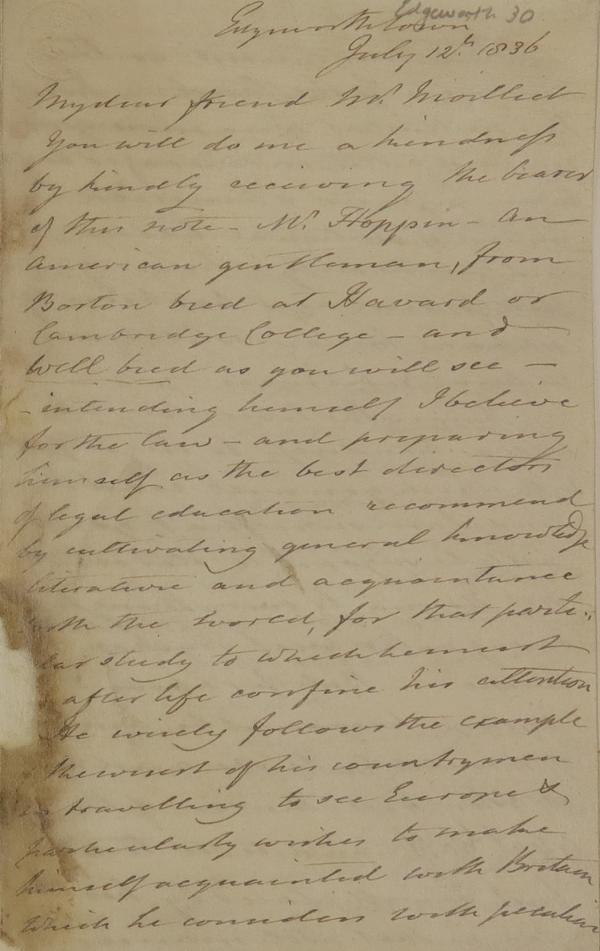 Edgeworth 30
Edgeworth Town
July 12th. 1836
My dear friend Mr. Moilliet
You will do me a kindness
by kindly receiving the bearer
of this note - Mr. Hoppin - an
American gentleman, from
Boston bred at Havard or
Cambridge College - and
well bred as you will see -
- intending himself I believe
for the law - and preparing
himself as the best directors
of legal education recommend
by cultivating general knowledge
literature and acquaintance
with the world, for that parti-
lar study to which he must
after life confine his attention
He wisely follows the example
the wisest of his countrymen
in travelling to see Europe &
particularly wishes to make
himself acquainted with Britain
which he considers with peculiar